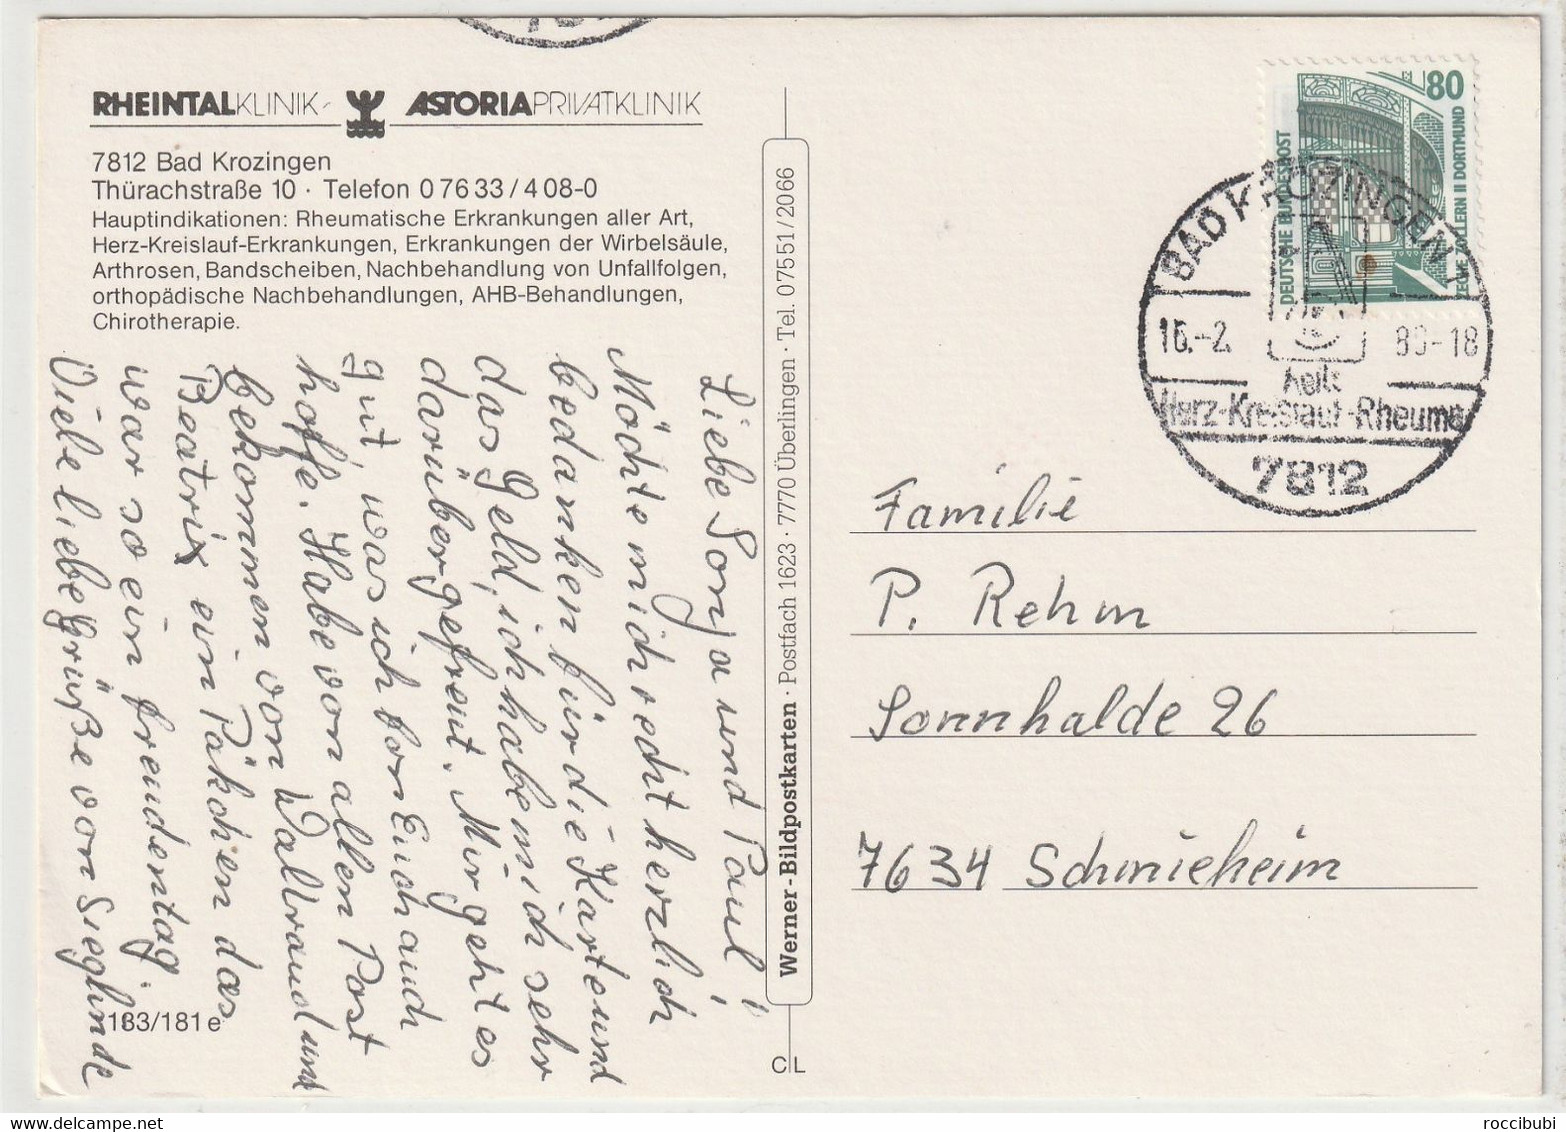 RHEINTALKLINIK - ASTORIAPRIVATKLINIK
7812 Bad Krozingen
Thürachstraße 10 · Telefon 0 76 33 / 4 08-0
Hauptindikationen: Rheumatische Erkrankungen aller Art,
Herz-Kreislauf-Erkrankungen, Erkrankungen der Wirbelsäule,
Arthrosen, Bandscheiben, Nachbehandlung von Unfallfolgen,
orthopädische Nachbehandlungen, AHB-Behandlungen,
Chirotherapie.
Liebe Sonja und Paul!
Möchte mich recht herzlich
bedanken für die Karte und
das Geld, ich habe mich sehr
darüber gefreut. Mir geht es
gut was ich von Euch auch
hoffe. Habe von allen Post
bekommen von Waltraud und
Beatrix ein Päkchen das
war so ein freudentag.
Viele liebe Grüße von Sieglinde
183/181 e
Werner-Bildpostkarten · Postfach 1623 · 7770 Überlingen · Tel. 07551/2066
C L
80
DEUTSCHE BUNDESPOST
ZECHE ZOLLERN II DORTMUND
BAD KROZINGEN
-2. -18
heilt
Herz-Kreislauf-Rheuma
7812
Familie
P. Rehm
Sonnhalde 26
7634 Schmieheim
roccibubi